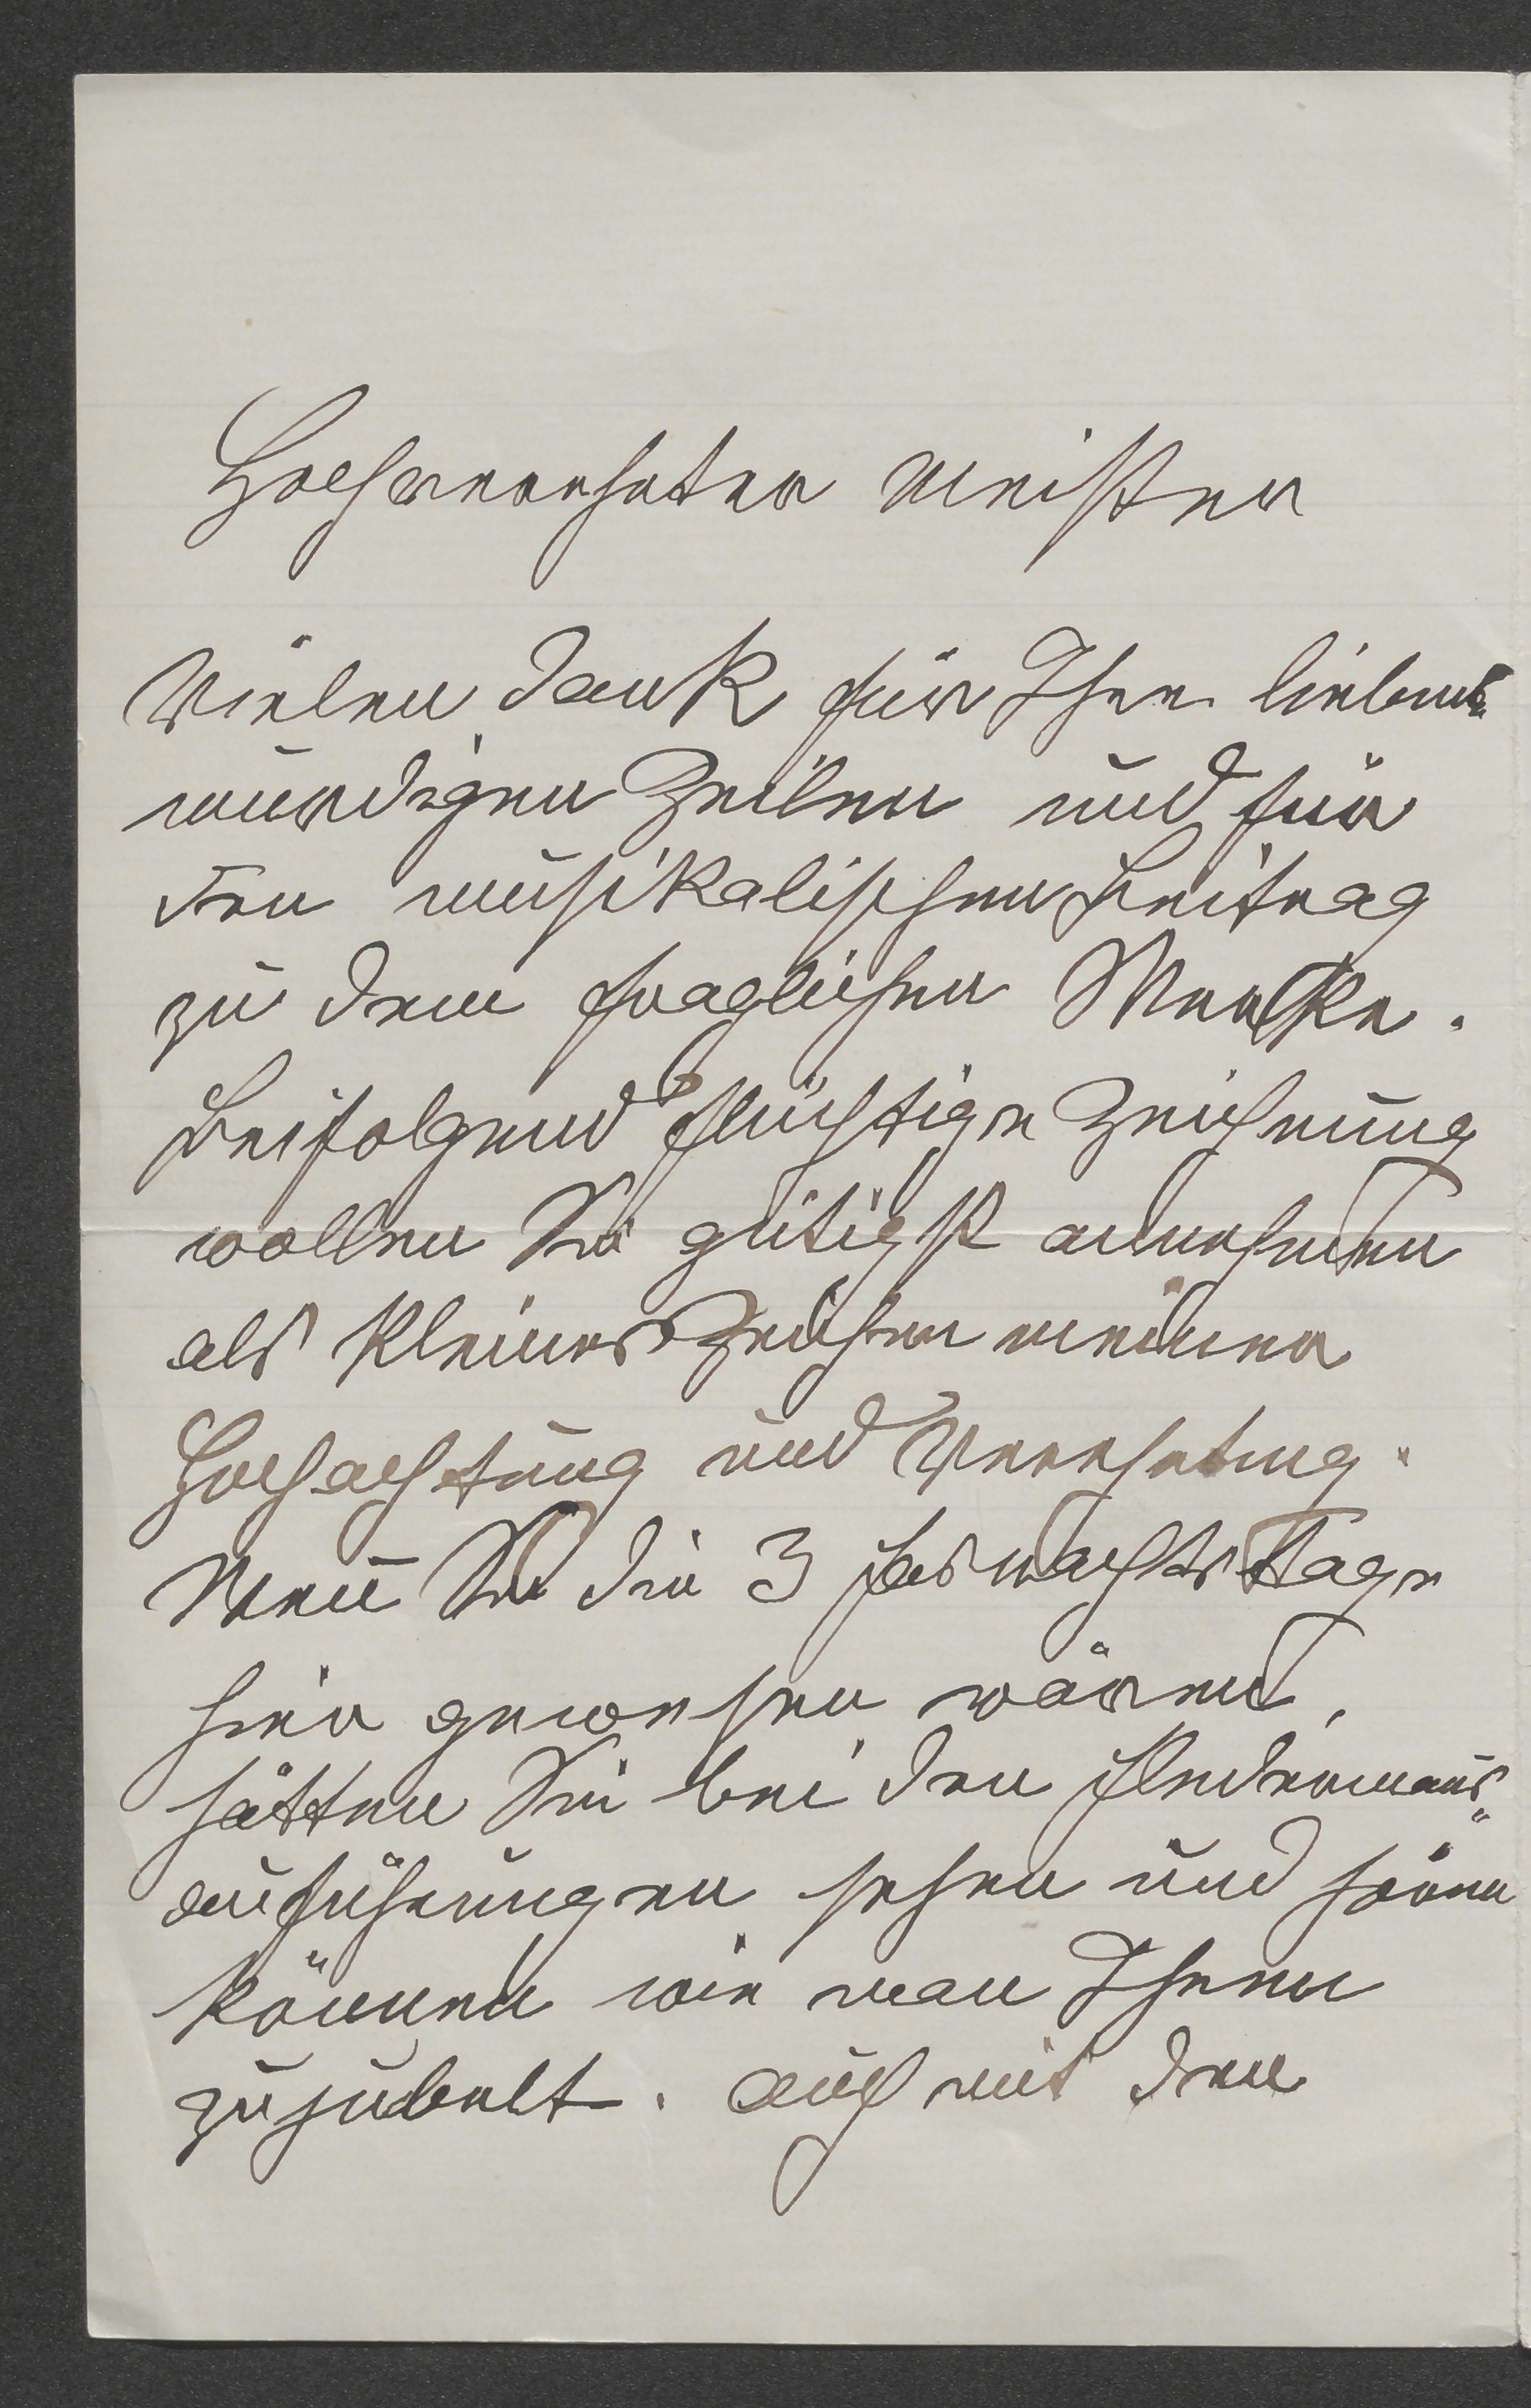 Hochverehrter Meister
Vielen Dank für Ihre liebens-
würdigen Zeilen und für
den musikalischen Beitrag
zu dem fraglichen Werke.
Beifolgend flüchtige Zeichnung
wollen Sie gütigst annehmen
als kleines Zeichen meiner
Hochachtung und Verehrung.
Wenn Sie die 3 Fasnachts Tage
hier gewesen wären,
hätten Sie bei den Fledermaus-
aufführungen sehen und hören
können wie man Ihnen
zujubelt. Auch mit dem